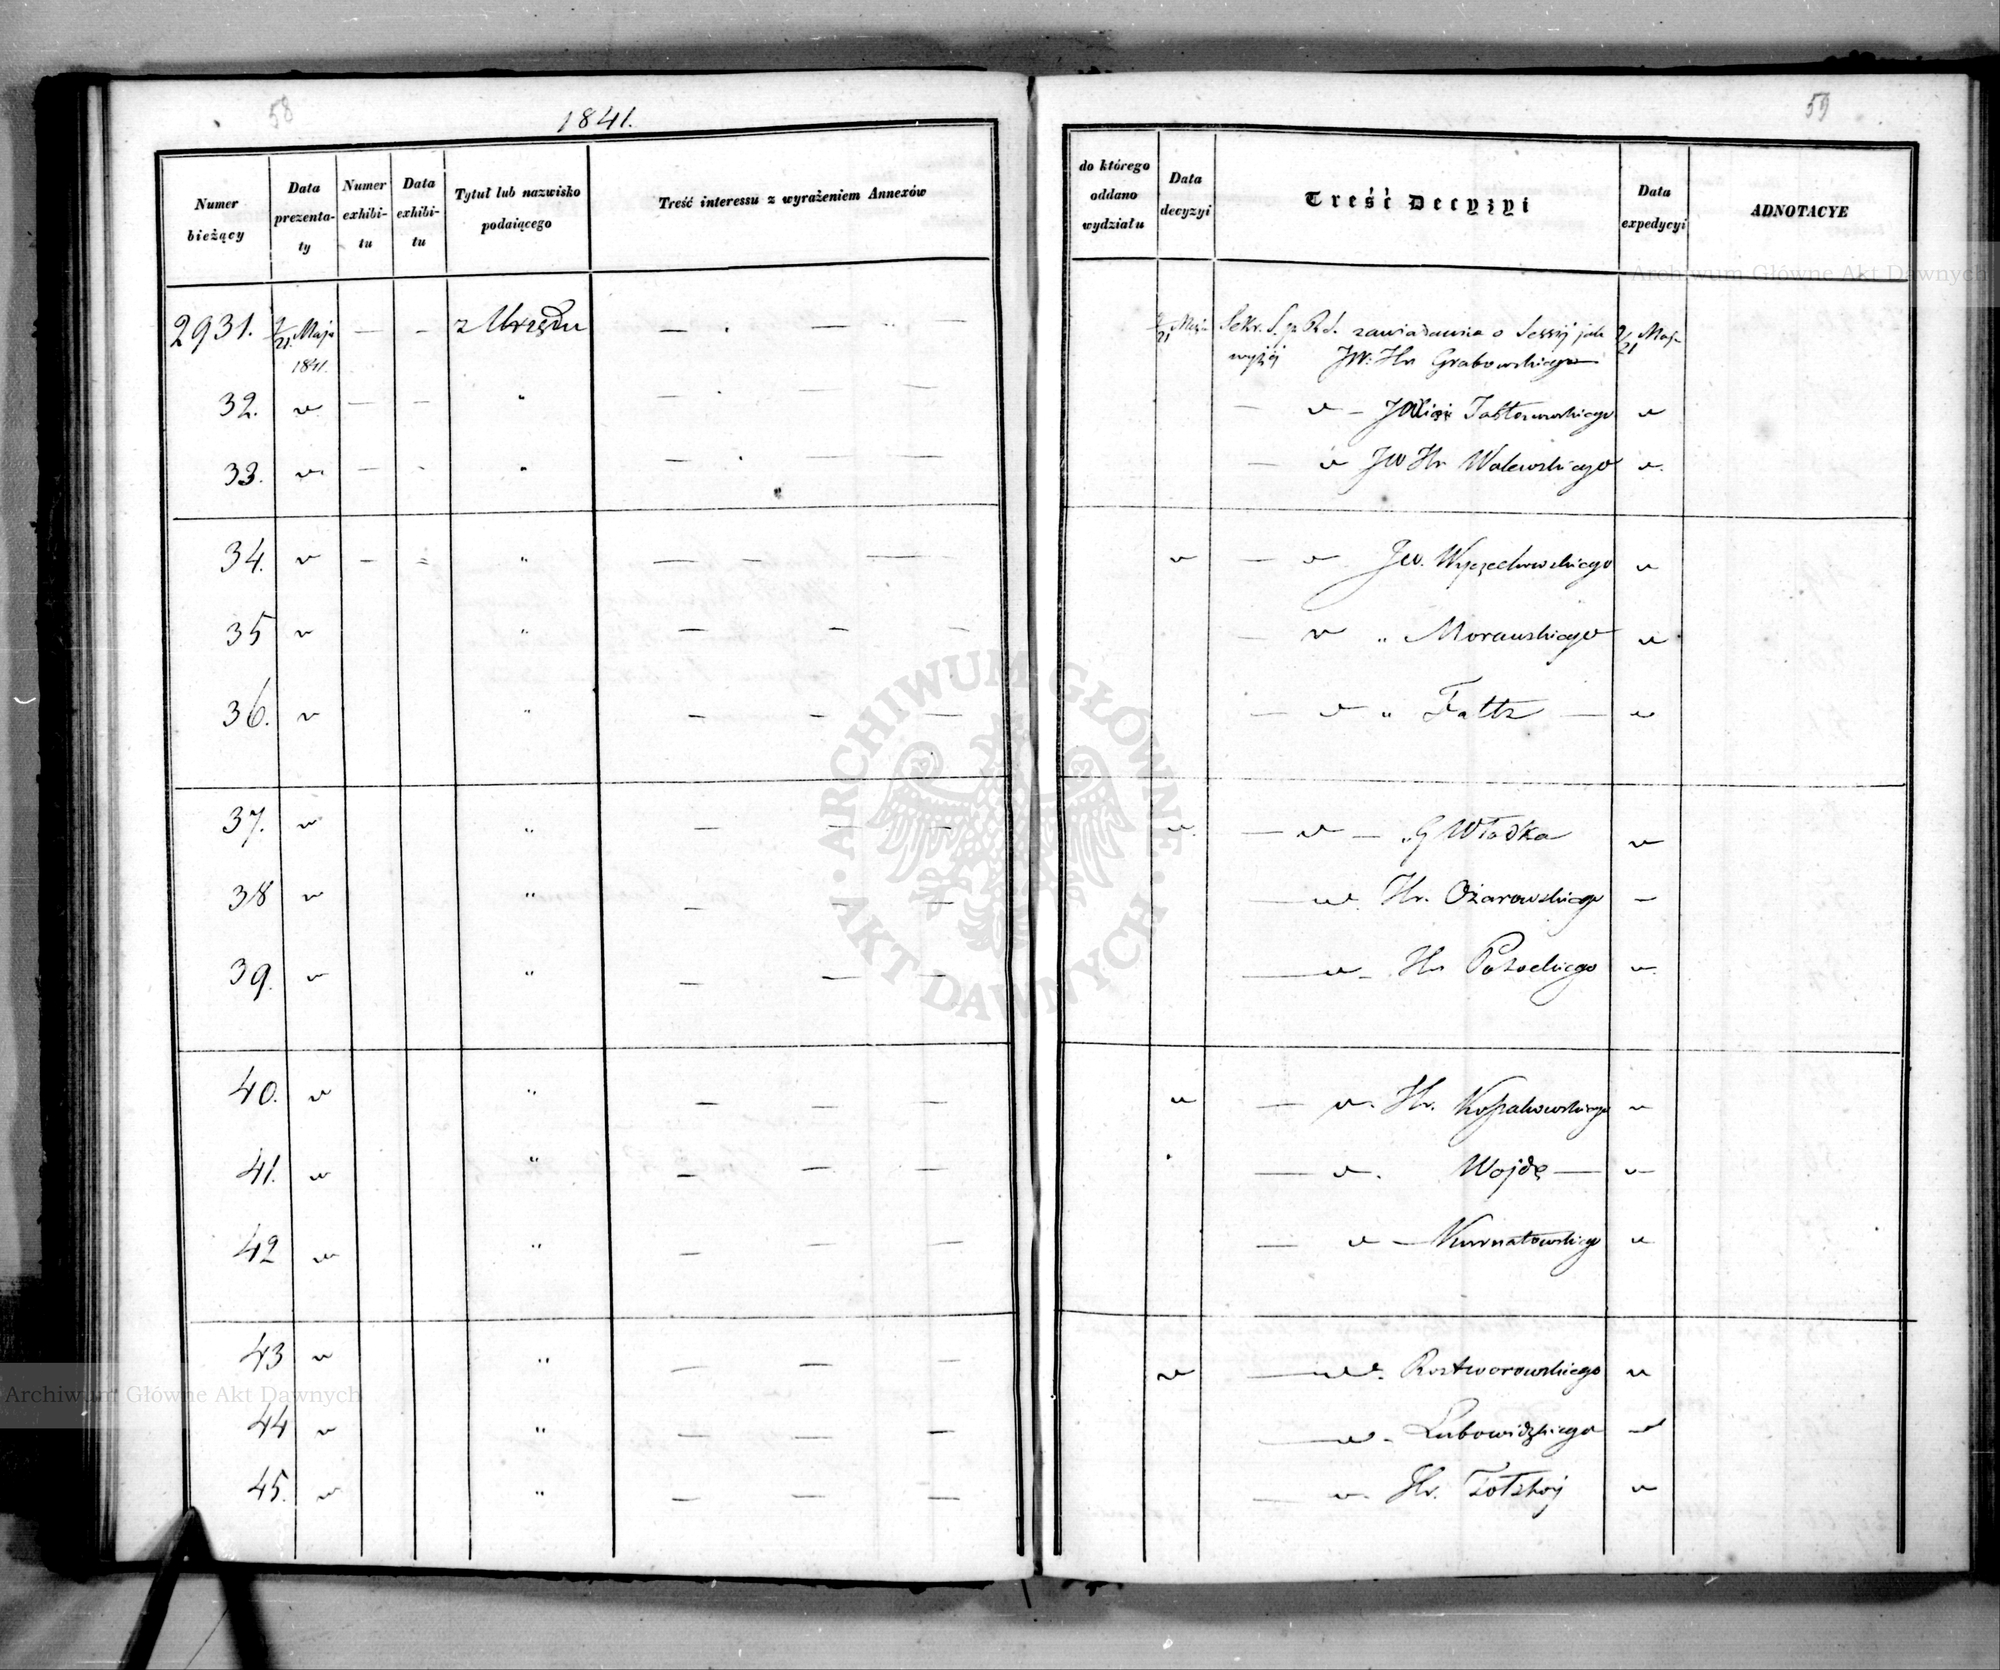 58
1841.
Numer bieżący
Data prezenta-ty
Numer exhibi-tu
Data exhibi-tu
Tytuł lub nazwisko podaiącego
Treść interessu z wyrażeniem Annexów
2931. 9/21 Maja 1841. — — z Urzędu — — —
32. " — — " — — —
33. " — — " — — —
34. " — = " — — —
35 " " — — —
36. " " — — —
37. " " — — —
38 " " — — —
39. " " — — —
40. " " — — —
41. " " — — —
42 " " — — —
43 " " — — —
44 " " — — —
45. " " — — —
59
do którego oddano wydziału
Data decyzyi
Treść Decyzyi
Data expedycyi
ADNOTACYE
9/21 Maja Sekr. S. p. R. S. zawiadamia o Sessyi jak 9/21 Maja
wyżej JW. Hr Grabowskiego
— " — Jabłonowskiego "
— " JW Hr Walewskiego "
" — " JW. Wyczechowskiego "
— " " Morawskiego "
— " " Faltz — "
" — " — " G Władka "
— " Hr. Ożarowskiego —
— " — Hr Potockiego "
" — " Hr. Kossakowskiego "
— " Wojdę — "
— " — Kurnatowskiego "
" — " Rostworowskiego "
— " — Lubowidzkiego "
— " Hr. Tołstoj "
Archiwum Główne Akt Dawnych
Archiwum Główne Akt Dawnych
ARCHIWUM GŁÓWNE AKT DAWNYCH